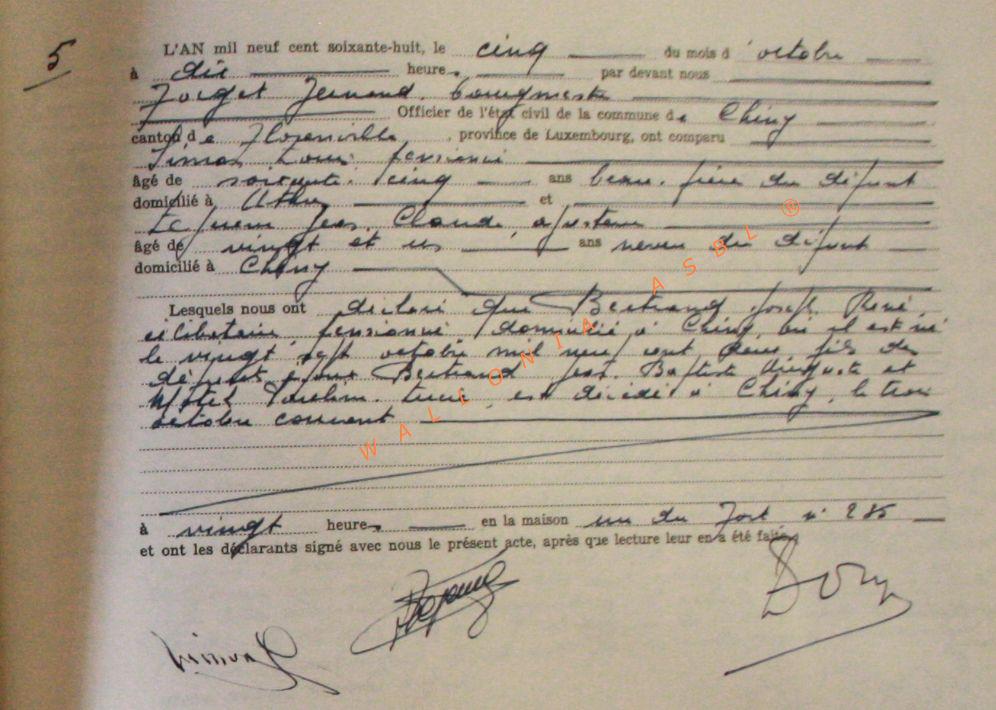 5
L'AN mil neuf cent soixante-huit, le cinq du mois d'octobre
à dix heures, par devant nous
Forget Fernand, bourgmestre
Officier de l'état civil de la commune de Chiny
canton de Florenville, province de Luxembourg, ont comparu
Louis pensionné
âgé de soixante-cinq ans beau-frère du défunt
domicilié à Athus et
Jean Claude, ajusteur
âgé de vingt et un ans neveu du défunt
domicilié à Chiny
Lesquels nous ont déclaré que Bertrand Joseph René
célibataire pensionné domicilié à Chiny, où il est né
le vingt sept octobre mil neuf cent fils des
défunts époux Bertrand Jean Baptiste Auguste et
Lucie, est décédé à Chiny, le trois
octobre courant
à vingt heures, en la maison rue du Fort n° 285
et ont les déclarants signé avec nous le présent acte, après que lecture leur en a été faite.
WALLONIA ASBL ®